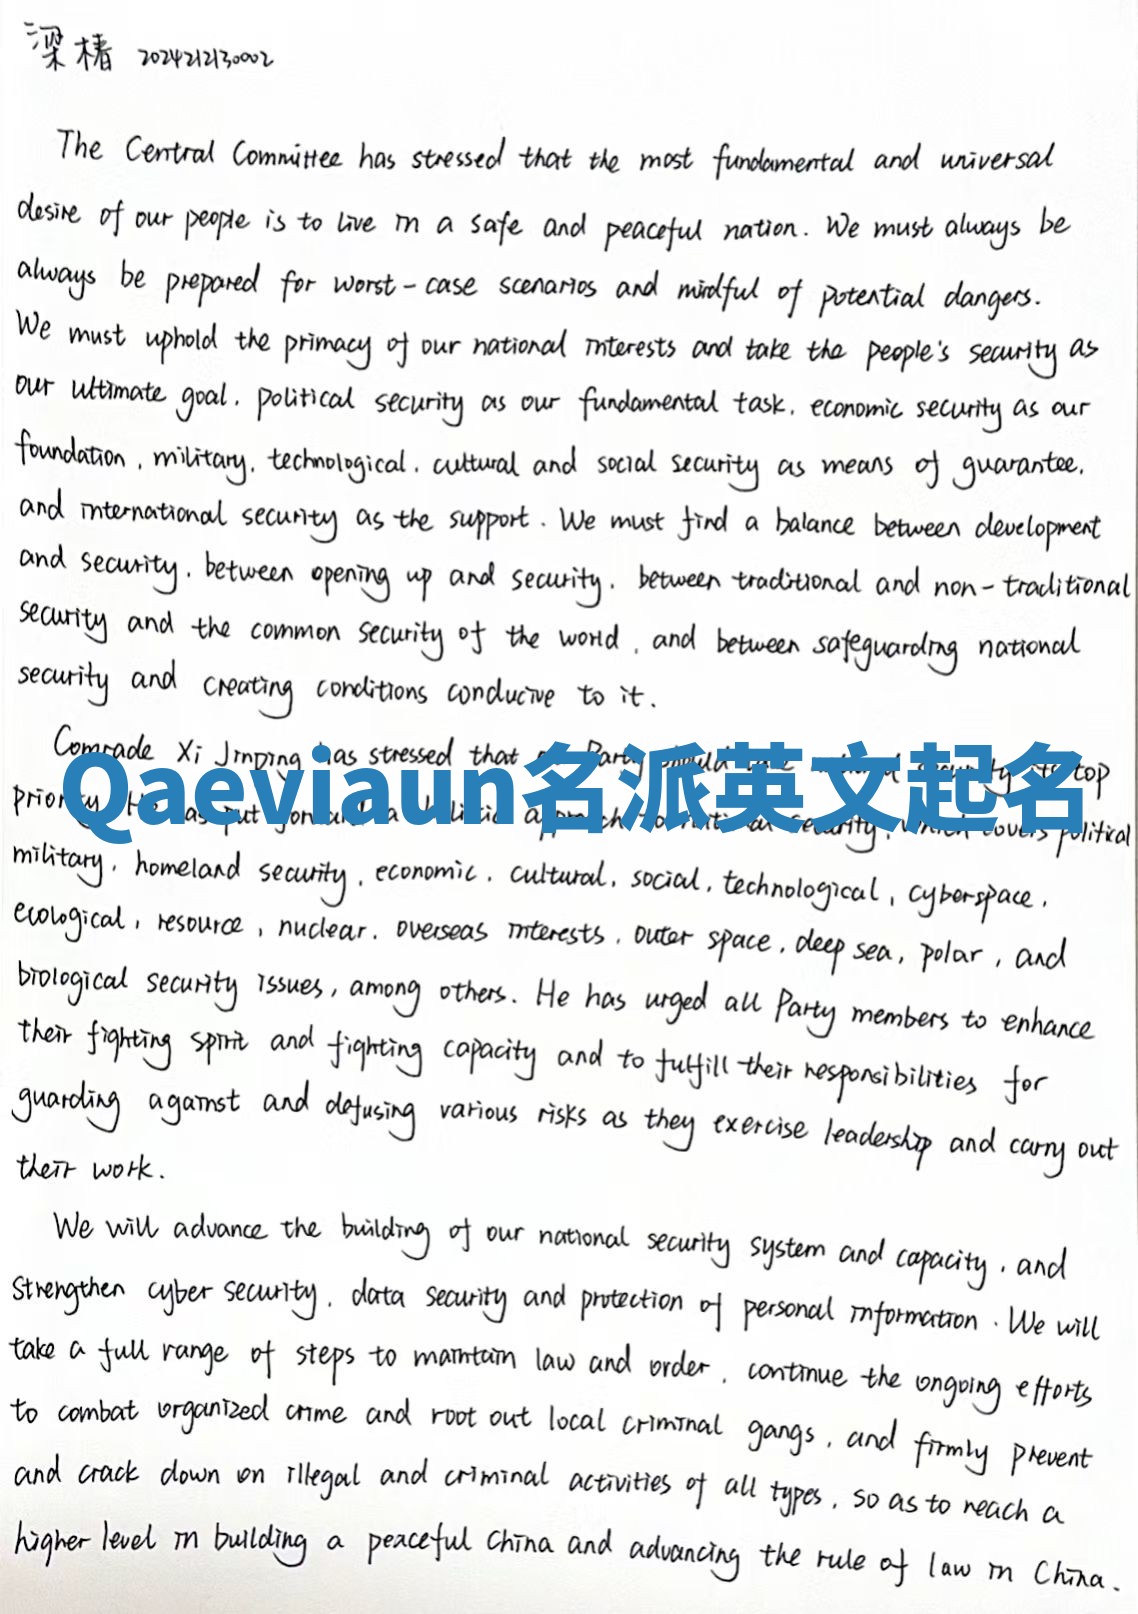 梁楮 2024212130002
The Central Committee has stressed that the most fundamental and universal
desire of our people is to live in a safe and peaceful nation. We must always be
always be prepared for worst-case scenarios and mindful of potential dangers.
We must uphold the primacy of our national interests and take the people's security as
our ultimate goal, political security as our fundamental task, economic security as our
foundation, military, technological, cultural and social security as means of guarantee,
and international security as the support. We must find a balance between development
and security, between opening up and security, between traditional and non-traditional
security and the common security of the world, and between safeguarding national
security and creating conditions conducive to it.
Comrade Xi Jinping has stressed that Party top
Qaeviaun名派英文起名
put a to security, which covers political
military, homeland security, economic, cultural, social, technological, cyberspace,
ecological, resource, nuclear, overseas interests, outer space, deep sea, polar, and
biological security issues, among others. He has urged all Party members to enhance
their fighting spirit and fighting capacity and to fulfill their responsibilities for
guarding against and defusing various risks as they exercise leadership and carry out
their work.
We will advance the building of our national security system and capacity, and
strengthen cyber security, data security and protection of personal information. We will
take a full range of steps to maintain law and order, continue the ongoing efforts
to combat organized crime and root out local criminal gangs, and firmly prevent
and crack down on illegal and criminal activities of all types, so as to reach a
higher level in building a peaceful China and advancing the rule of law in China.